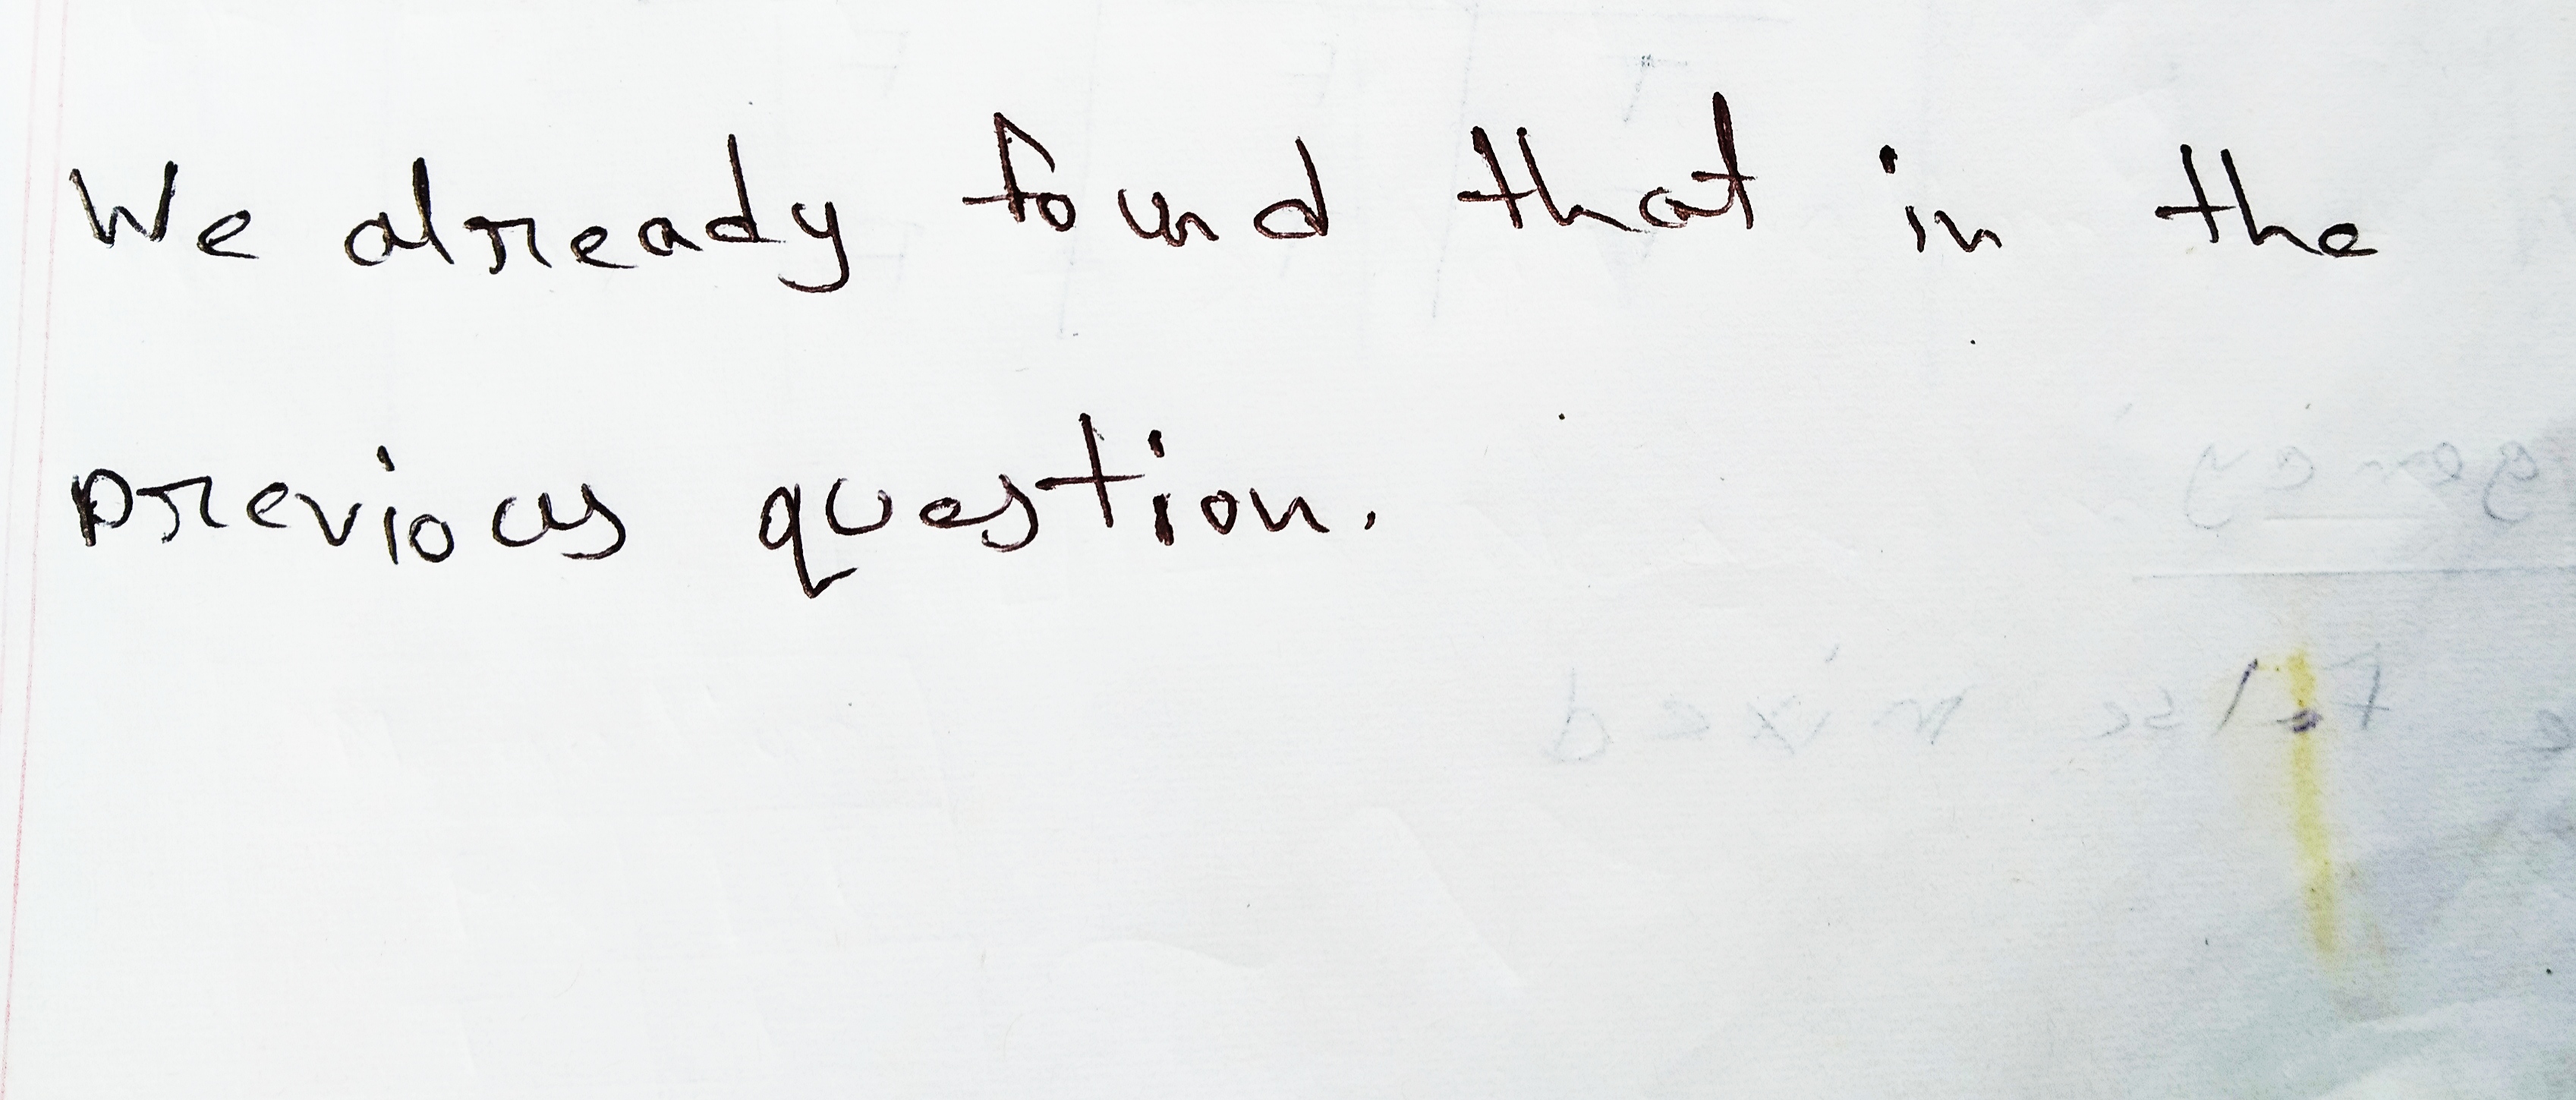 We already found that in the
previous question.